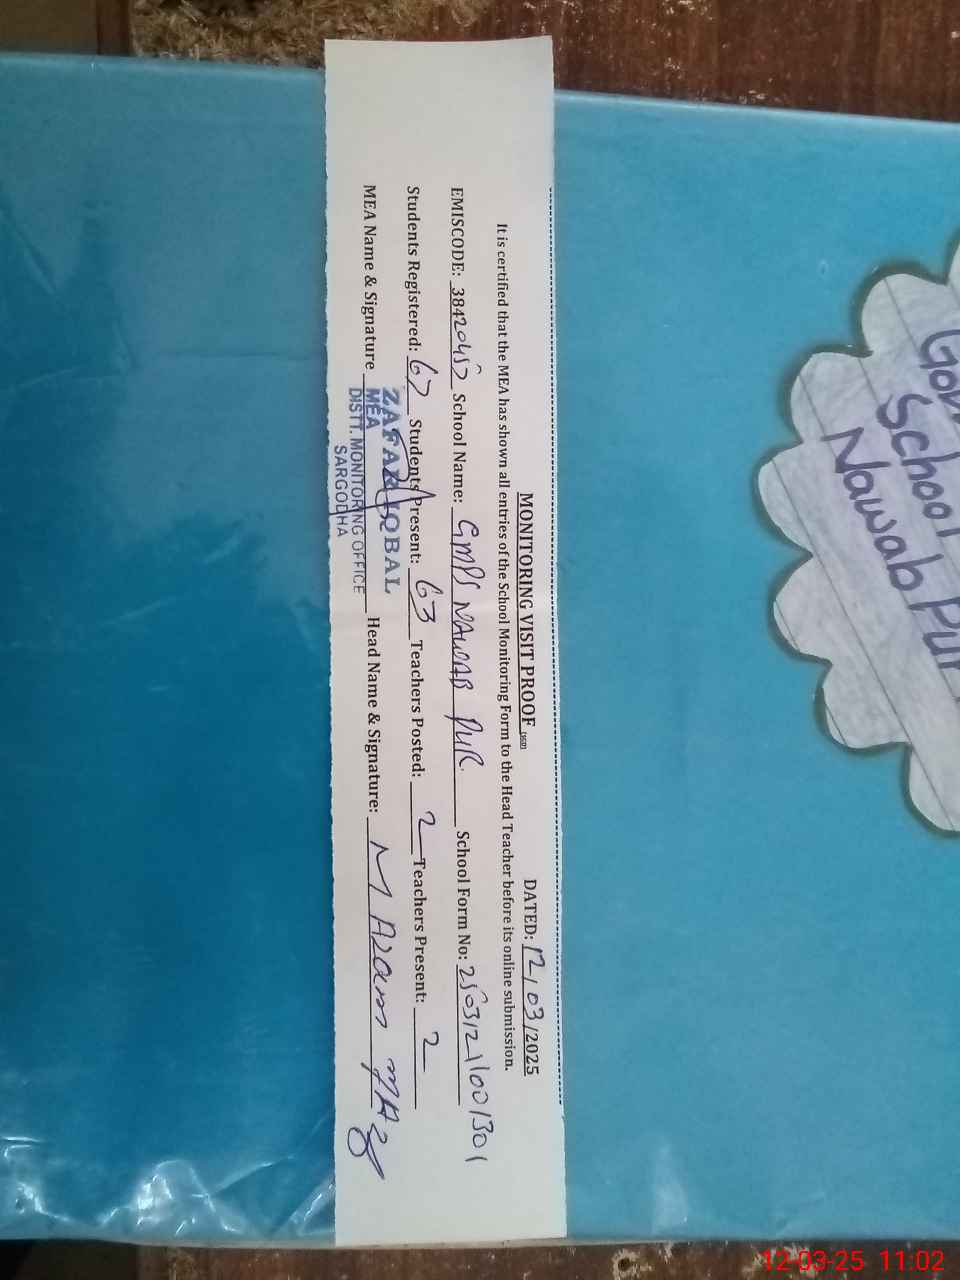 MONITORING VISIT PROOF
DATED: 12/03/2025
It is certified that the MEA has shown all entries of the School Monitoring Form to the Head Teacher before its online submission.
EMISCODE: 38420457 School Name: GMPS NAWAB PUR School Form No: 25031211001301
Students Registered: 67 Students Present: 63 Teachers Posted: 2 Teachers Present: 2
MEA Name & Signature Head Name & Signature: M Azam
ZAFAR IQBAL
MEA
DISTT. MONITORING OFFICE
SARGODHA
School
Nawab Pur
12-03-25 11:02